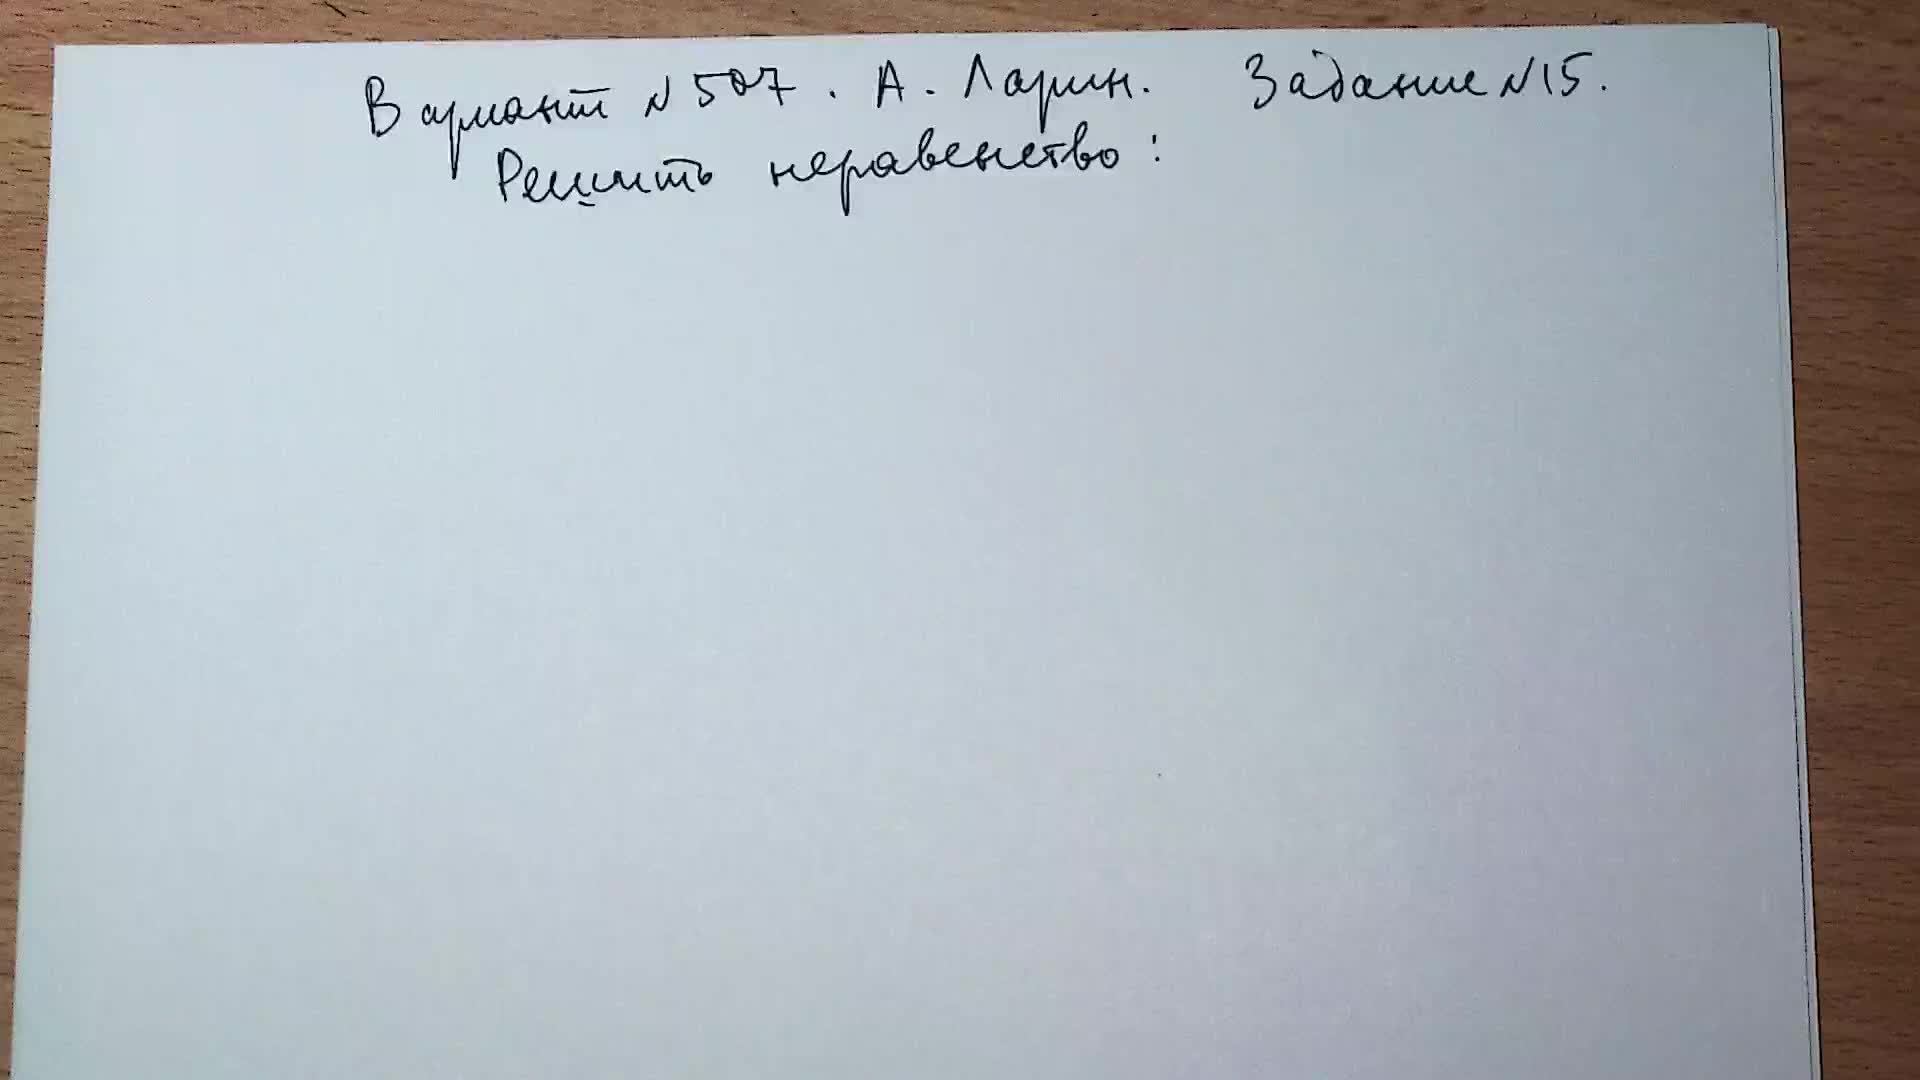 Вариант №507. А. Ларин. Задание №15.
Решить неравенство: